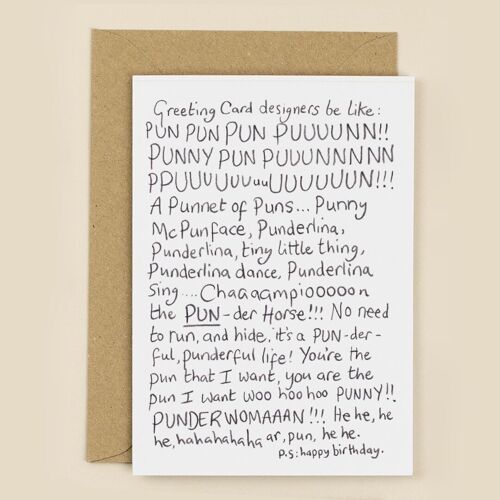 Greeting Card designers be like:
PUN PUN PUN PUUUUNN!!
PUNNY PUN PUUUNNNNN
PPUUUUUuuuUUUUUUUN!!!
A Punnet of Puns... Punny
McPunface, Punderlina,
Punderlina, tiny little thing,
Punderlina dance, Punderlina
Sing.... Chaaaampiooooon
the PUN-der Horse!!! No need
to run, and hide, it's a PUN-der-
ful, punderful life! You're the
pun that I want, you are the
pun I want woo hoo hoo PUNNY!!
PUNDERWOMAAAN!!! He he, he
he, hahahahaha ar, pun, he he.
P.S: happy birthday.